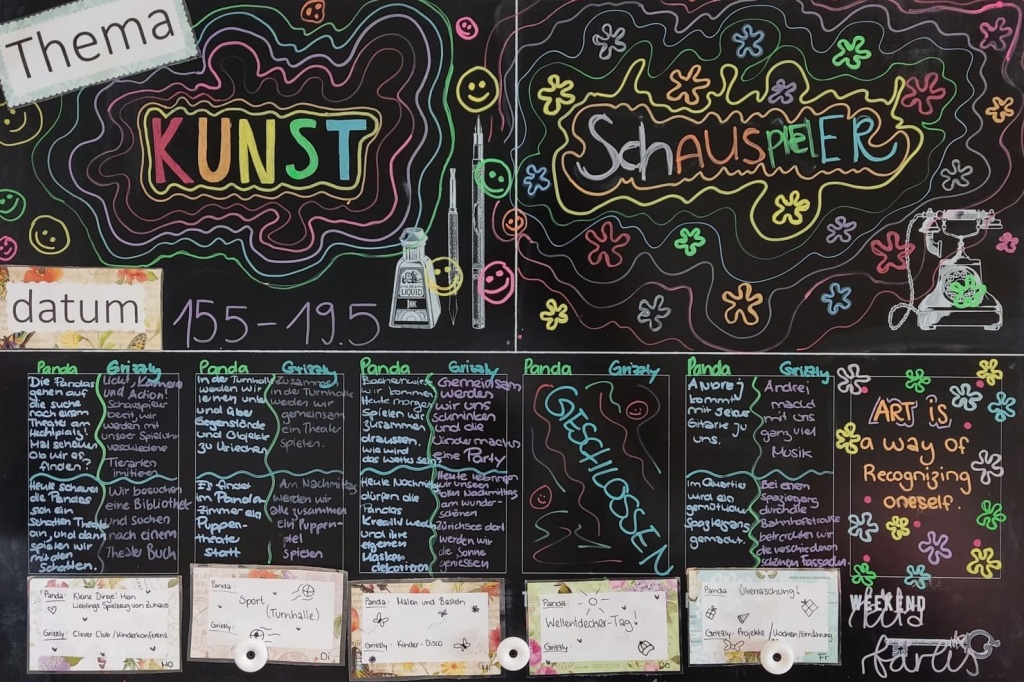 Thema
KUNST
SchAUSPIELER
LIQUID
INK
datum
15.5 - 19.5
Panda Grizzly
Die Pandas
gehen auf
die suche
nach einem
Theater am
Hechtplatz!
Mal schauen
ob wir es
finden?
Licht, Kamera
und Action!
Schauspieler
bereit, wir
werden mit
unserer Spieluhr
verschiedene
Tierarten
imitieren
Heute schauen
die Pandas
sich ein
Schatten Theater
an, und dann
spielen wir
mit den
Schatten.
Wir besuchen
eine Bibliothek
und suchen
nach einem
Theater Buch
Panda Grizzly
In der Turnhalle
werden wir
lernen uns
und über
Gegenstände
und Objekte
zu kriechen
Zusammen
in der Turnhalle
werden wir
gemeinsam
ein Theater
spielen.
Es findet
im Panda
zimmer ein
Puppen-
theater
statt
Am Nachmittag
werden wir
alle zusammen
ein Puppen-
spiel
spielen
Panda Grizzly
wir kommen
Heute morgen
Spielen wir
zusammen
draussen.
wie wird
das wetter sein?
Gemeinsam
werden
wir uns
schminken
und die
Kinder machen
eine Party
Heute Nachmittag
dürfen die
Pandas
kreativ werden
und ihre
eigenen
Masken
dekorieren
Heute
wir unseren
Nachmittag
am wunder-
schönen
Zürichsee dort
werden wir
die Sonne
geniessen
Panda Grizzly
GESCHLOSSEN
Panda Grizzly
Andrej
kommt
mit seiner
Gitarre zu
uns.
Andrei
macht
mit uns
ganz viel
Musik
Im Quartier
wird ein
gemütlicher
Spaziergang
gemacht.
Bei einem
Spaziergang
durch die
Bahnhofstrasse
betrachten wir
die verschiedenen
schönen Fassaden.
ART is
a way of
Recognizing
oneself.
Panda: Kleine Dinge! Mein
Lieblings Spielzeug von Zuhaus
Grizzly: Clever Club / Kinderkonferenz
MO
Panda:
Sport
(Turnhalle)
Grizzly:
Di
Panda: Malen und Basteln
Grizzly: Kinder-Disco
Mi
Panda:
Weltentdecker-Tag!
Grizzly:
DO
Panda: Überraschung!
Grizzly: Projekte / Kochen/Ernährung
Fr
WEEKEND